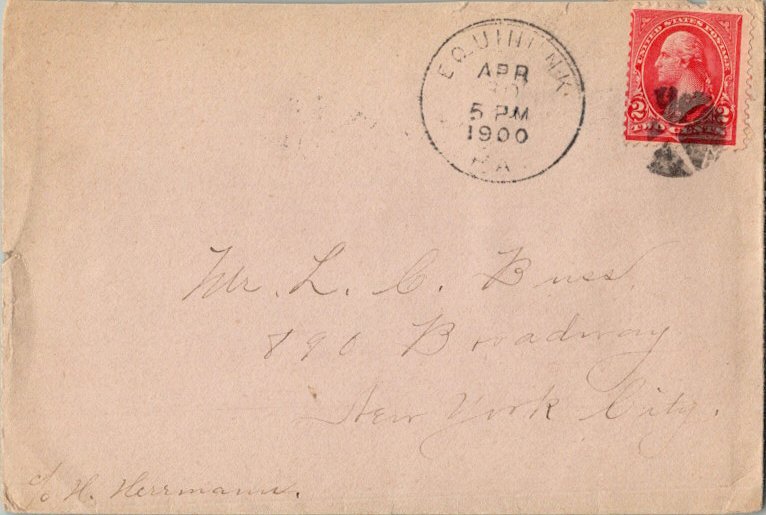 EQUINUNK.
APR
30
5 PM
1900
PA
UNITED STATES POSTAGE
2 2
TWO CENTS
Mr. L. C. Buss,
890 Broadway
New York City.
c/o H. Herrmann.